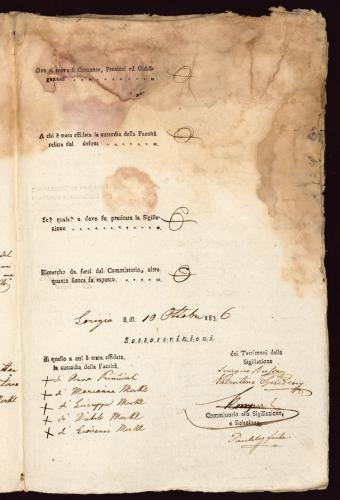 Ove si trova il Contante, Preziosi ed Obbli-
gazioni
A chi è stata affidata la custodia della Facoltà
relitta dal defunto
Se? quale? e dove fu praticata la Sigilla-
zione
Rimarcho da farsi dal Commissario, oltre
quanto finora fu esposto.
Gorizia li di 10 Ottobre 1826
Sottoscrizioni
di quello a cui è stata affidata
la custodia della Facoltà.
+ di Anna
+ di Marianna Merkl
+ di Giuseppe Merkl
+ di Michele Merkl
+ di Giovanni Merkl
dei Testimonj della
Sigillazione
Valentino
Commissario alla Sigillazione,
e Relazione.